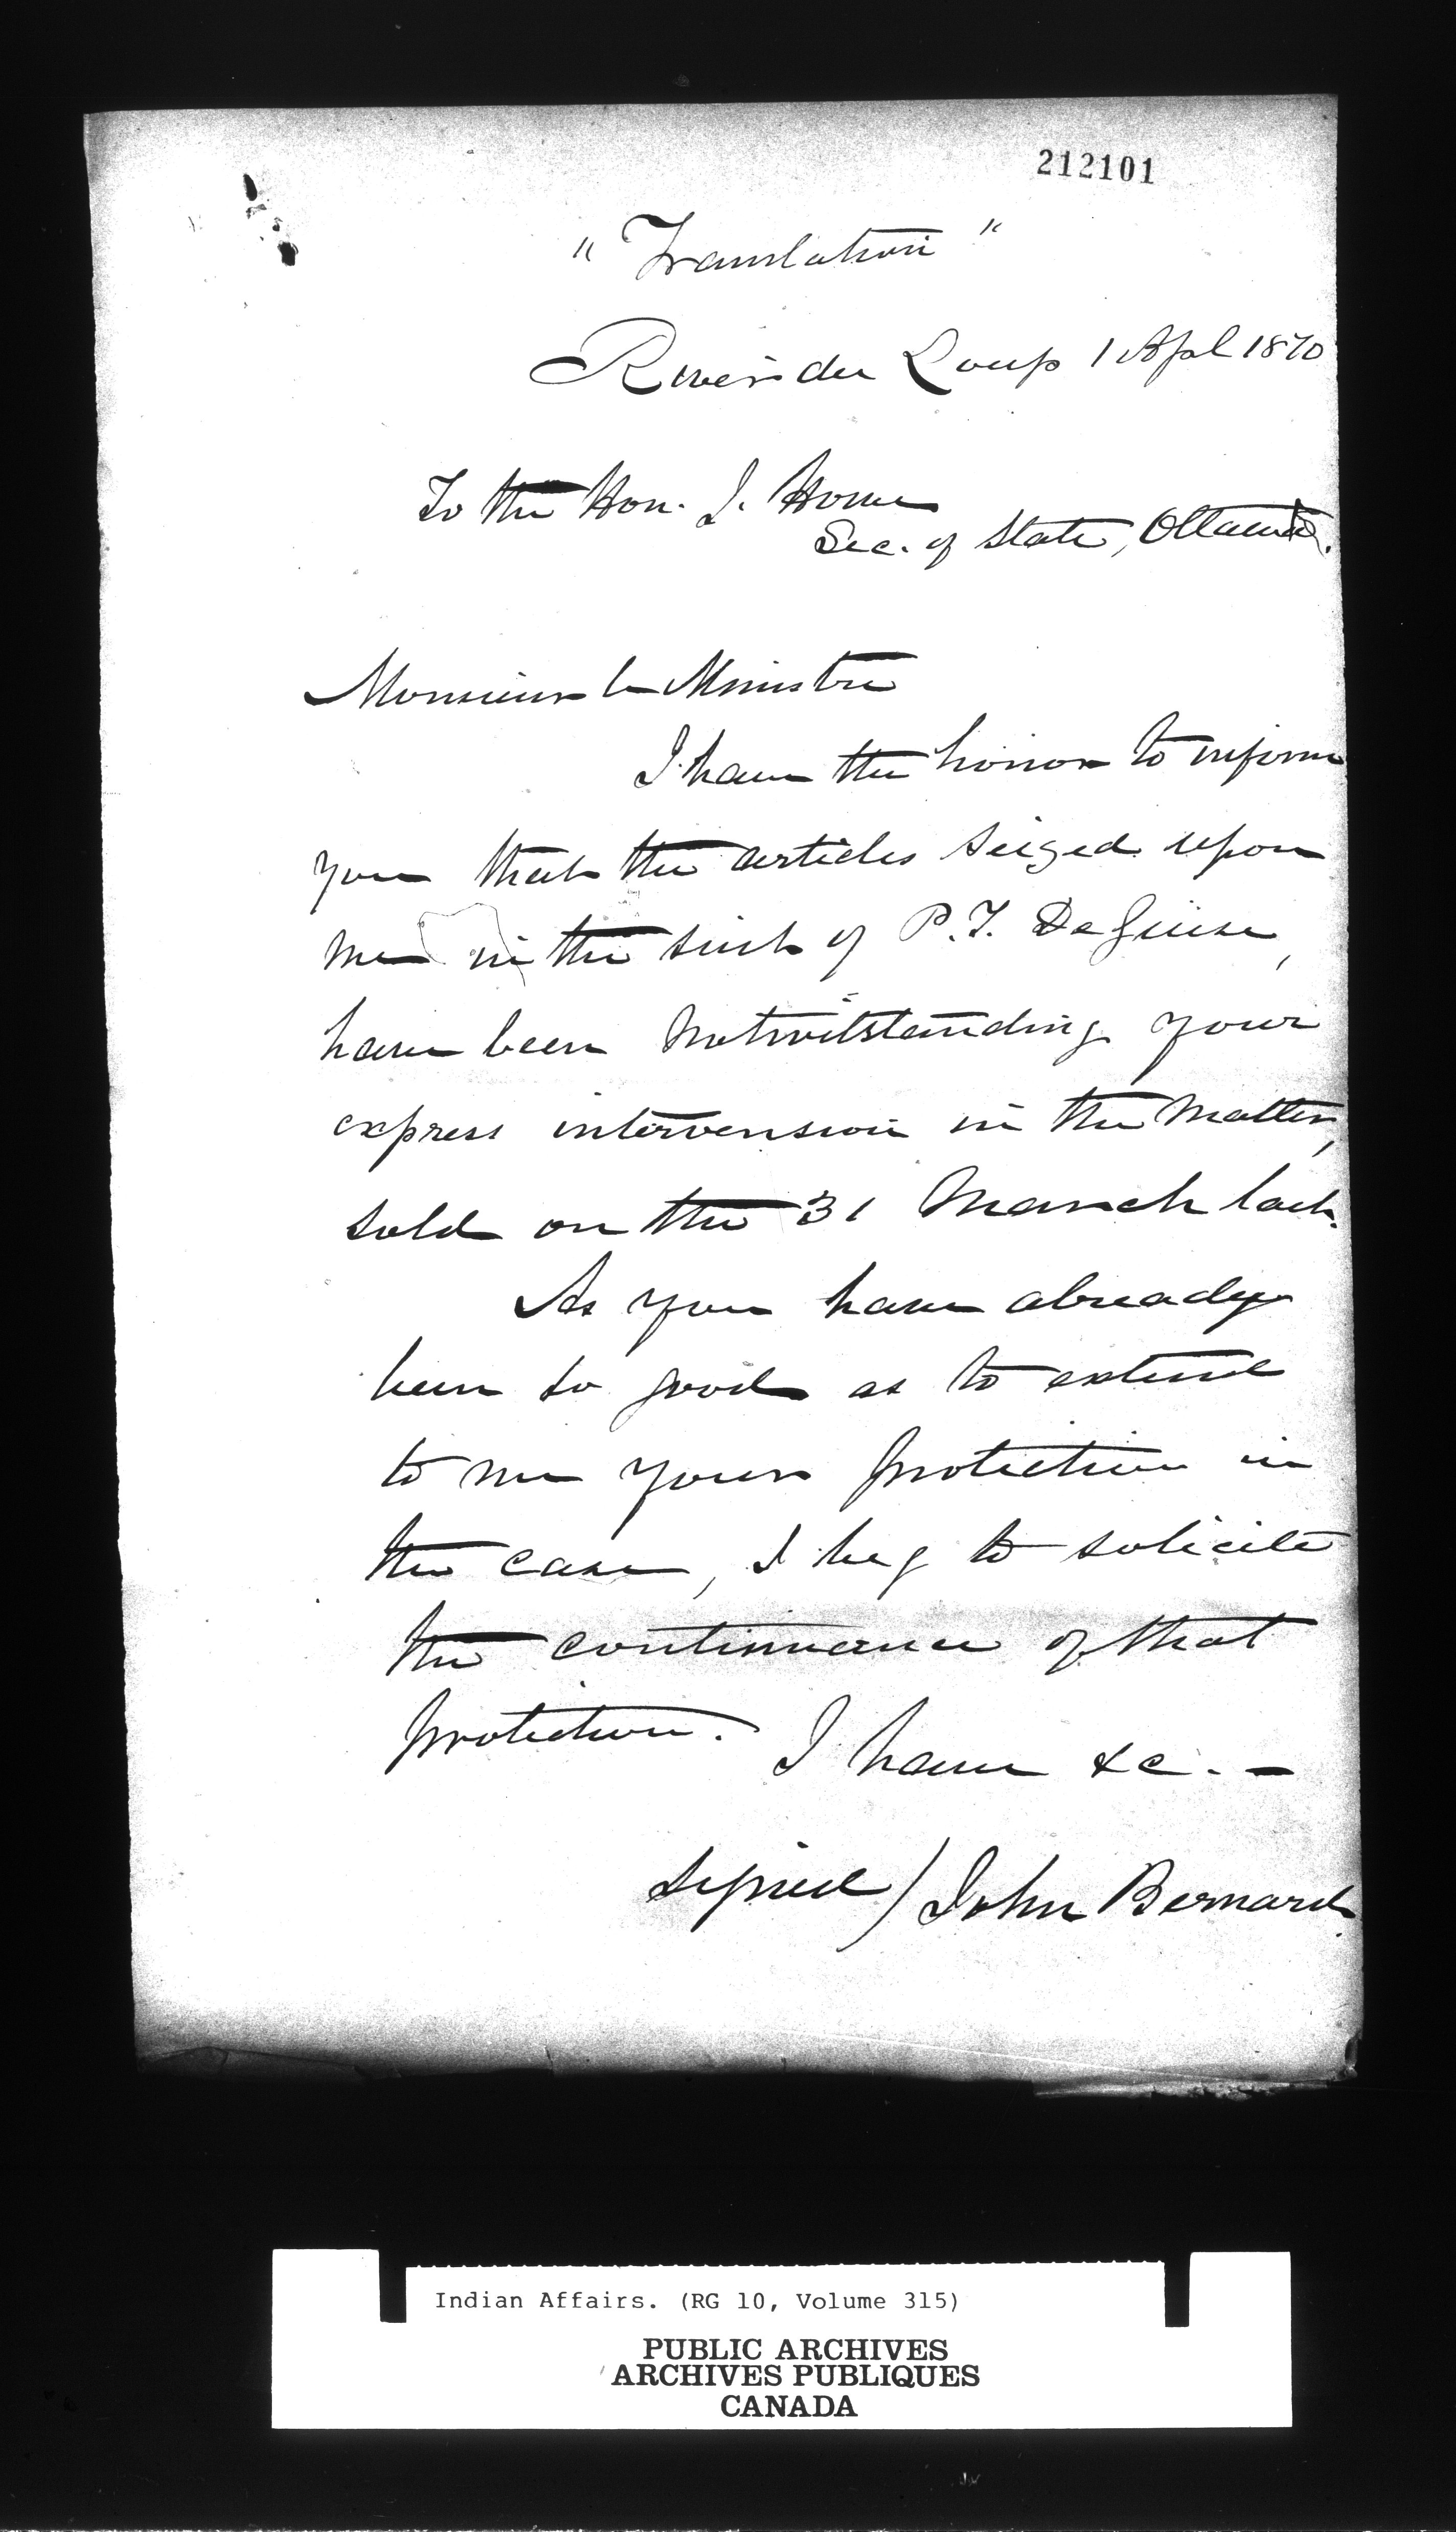 212101
"Translation"
Rivière du Loup 1 Apl 1870
To the Hon. J. Howe
Sec. of State, Ottawa.
Monsieur le Ministre
I have the honor to inform
you that the articles seized upon
me in the suit of P.T. De Guise,
have been notwitstanding your
express intervension in the matter,
sold on the 31 March last.
As you have already
been so good as to extend
to me your protection in
the case, I beg to solicite
the continuance of that
protection. I have &c. -
Signed / John Bernard.
Indian Affairs. (RG 10, Volume 315)
PUBLIC ARCHIVES
ARCHIVES PUBLIQUES
CANADA